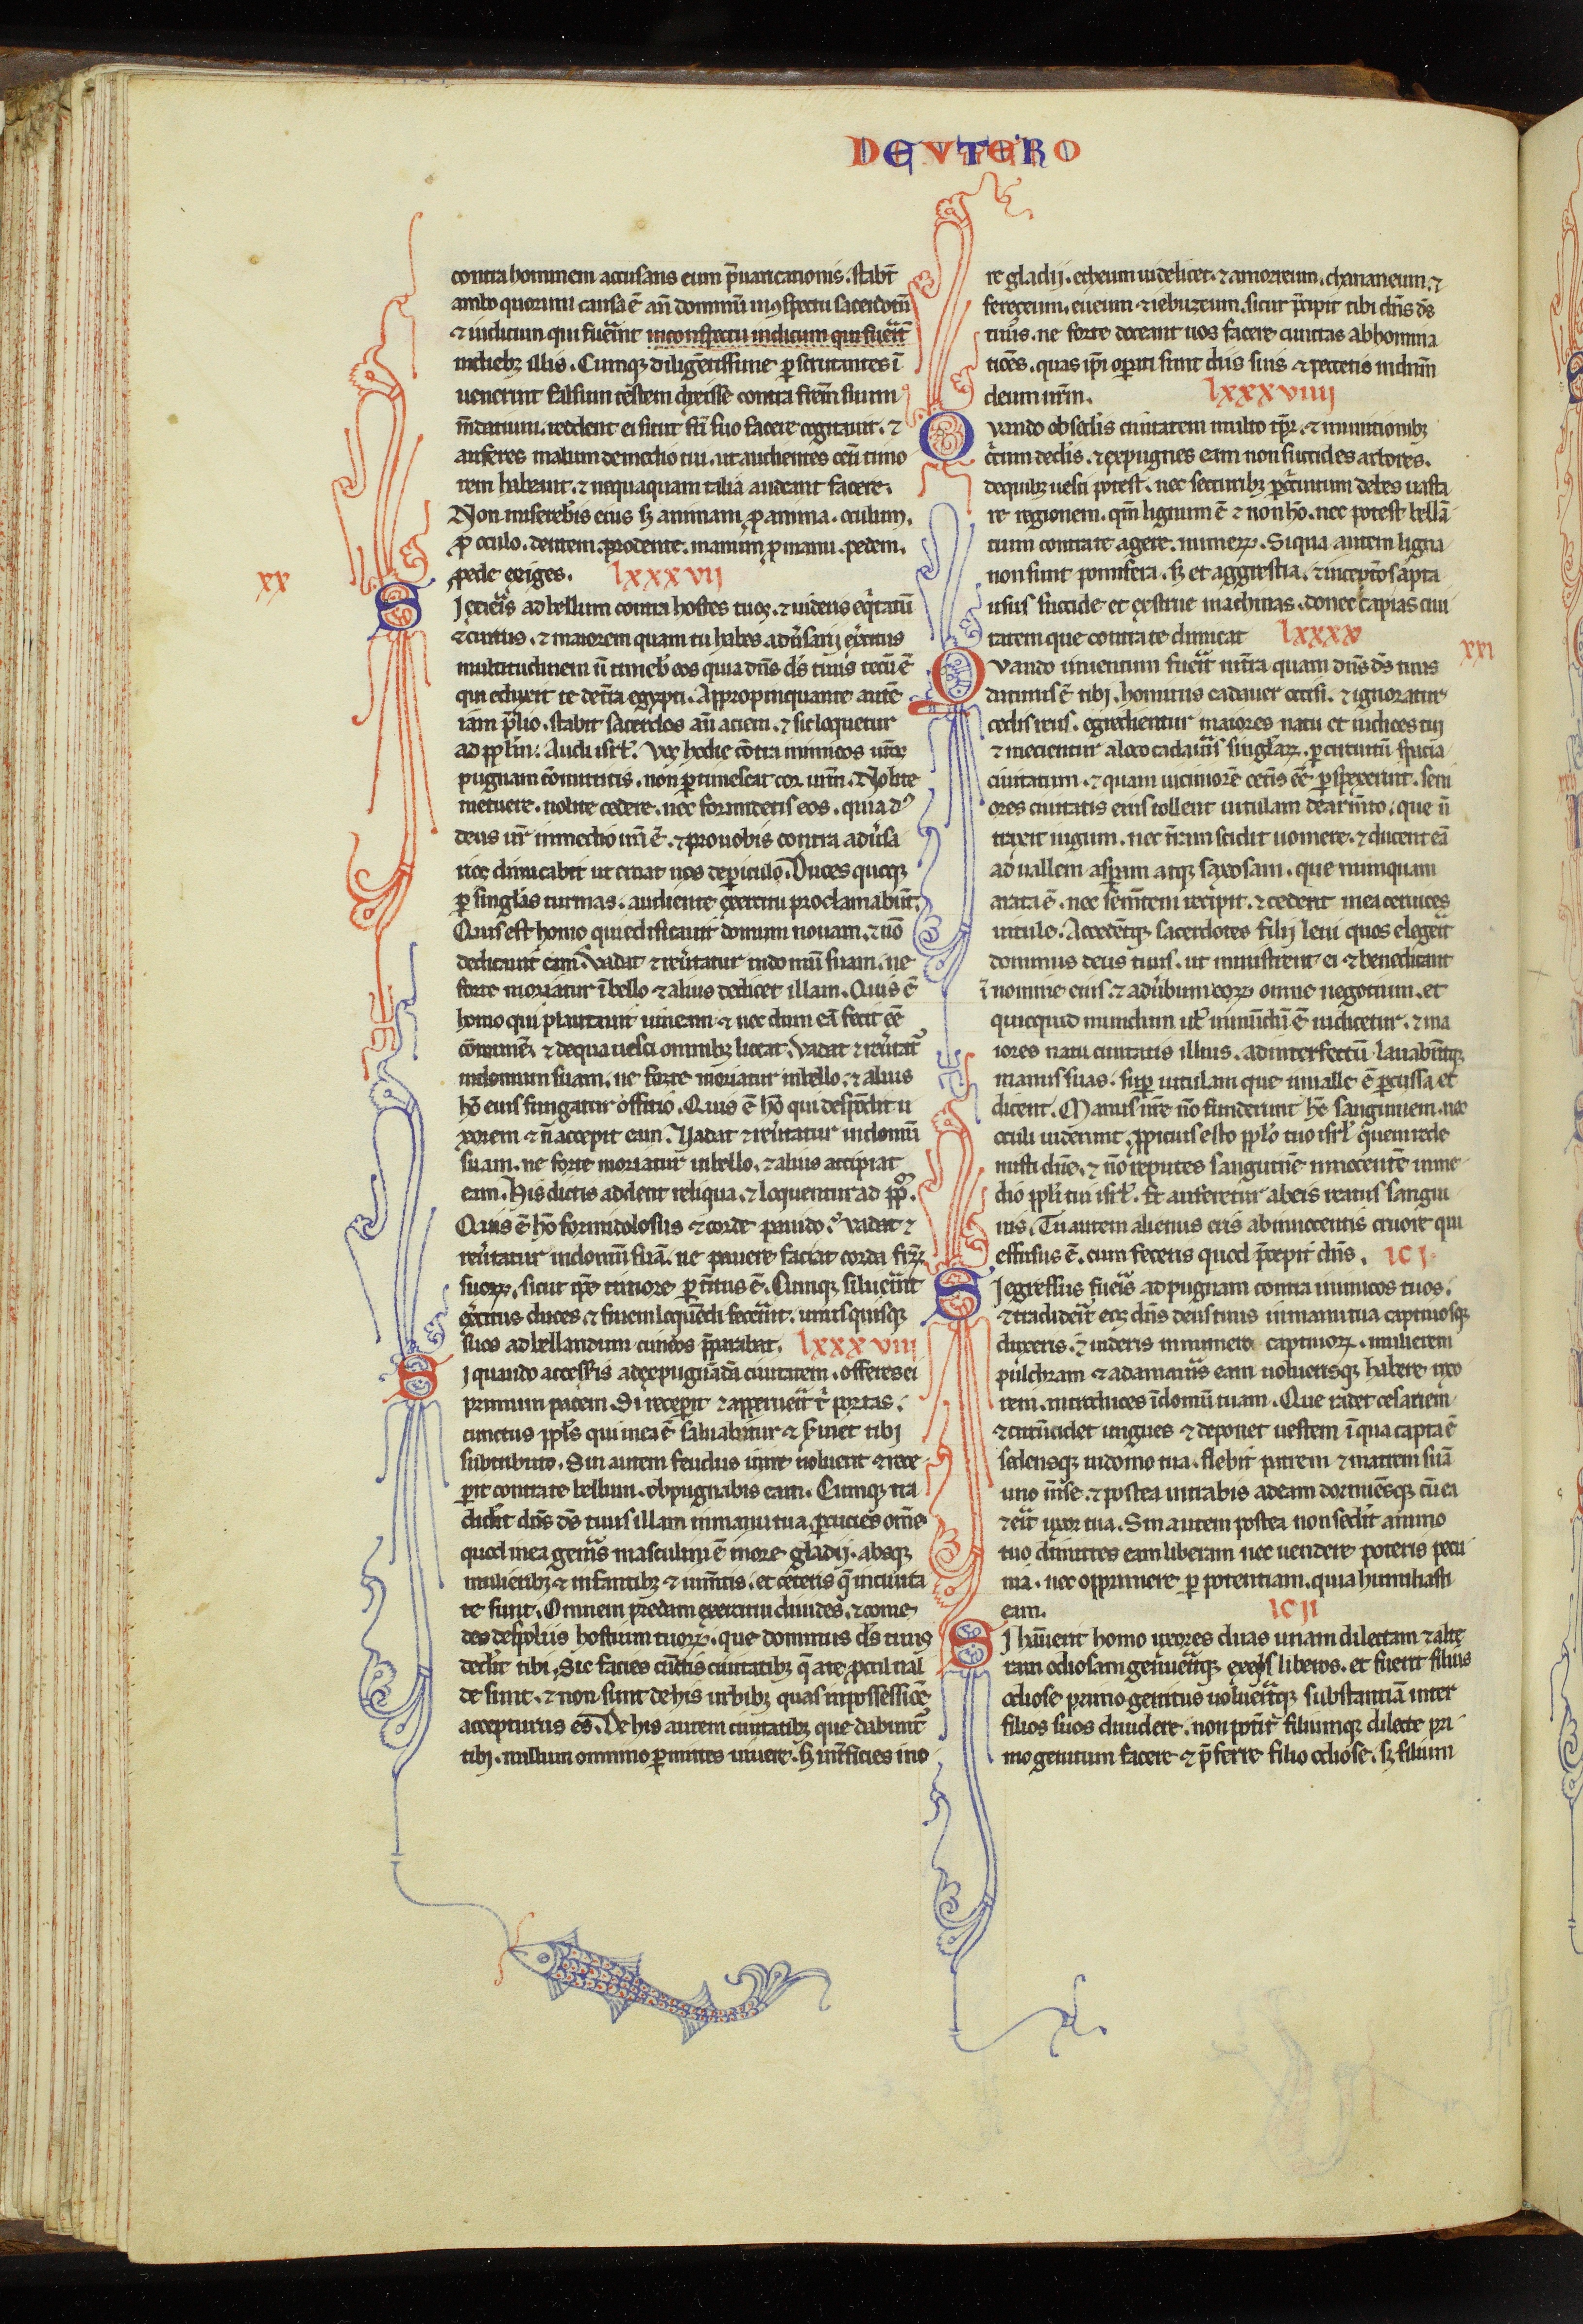 DEUTERO
contra hominem accusans eum p̄uaricationis. stabt̄
ambo quorum causa ē an̄ dominū in ꝯspectu sacerdotū
⁊ iudicum qui fuer̄int in conspectu iudicum qui fuerīt
in dieb; illis. Cumq; diligētissime p̱scrutantes ī
uenerint falsum testem dixisse contra fr̄em suum
m̄datium. reddent ei sicut fr̄i suo facere cogitauit. ⁊
auferes malum de medio tui. ut audientes cet̄i timo
rem habeant. ⁊ nequaquam talia audeant facere.
Non misereb̄is eius s; animam ꝓ anima. oculum.
ꝓ oculo. dentem. pro dente. manum ꝓ manu. pedem.
pede exiges. lxxxvii
xx
Si exier̄is ad bellum contra hostes tuos. ⁊ uideris eq̄tatū
⁊ currus. ⁊ maiorem quam tu habes aduersarii ex̄citus
multitudinem n̄ timeb̄ eos quia dn̄s ds̄ tuus tecū ē
qui eduxit te de tr̄a egypti. Appropinquante autē
iam p̄lio. stabit sacerdos an̄ aciem. ⁊ sic loquetur
ad pplm̄. Audi isrl̄. Vos hodie cōtra inimicos ur̄os
pugnam cōmittitis. non p̱timescat cor ur̄m. Nolite
metuere. nolite cedere. nec formidetis eos. quia dn̄s
deus ur̄ in medio ur̄i ē. ⁊ pro uobis contra aduersa
rios dimicabit ut eruat uos de p̱iculo. Duces quoq;
p̱ singlas turmas. audiente exercitu proclamabūt.
Quis est homo qui edificauit domum nouam. ⁊ nō
dedicauit eam. Vadat ⁊ reu̅tatur in domū suam. ne
forte moriatur ī bello ⁊ alius dedicet illam. Quis ē
homo qui plantauit uineam ⁊ nec dum eā fecit eē
cōmunē. ⁊ de qua uesci omnib; liceat. Vadat ⁊ reu̅tat̄
in domum suam. ne forte moriatur in bello. ⁊ alius
hō eius fungatur officio. Quis ē hō qui despōdit u
xorem ⁊ n̄ accepit eam. Vadat ⁊ reu̅tatur in domū
suam. ne forte moriatur in bello. ⁊ alius accipiat
eam. His dictis addent reliqua. ⁊ loquentur ad ppl̄m.
Quis ē hō formidolosus ⁊ corde pauido. vadat ⁊
reu̅tatur in domū suā. ne pauere faciat corda fr̄ꝝ
suoꝝ. sicut ip̄e timore p̱t̄ritus ē. Cumq; siluer̄int
ex̄citus duces. ⁊ finem loquēdi fecer̄int. unusquisq;
suos ad bellandum cuneos p̄parabit. lxxxviii
Si quando access̄is ad expugnādā ciuitatem. offeres ei
primum pacem. Si recep̱it ⁊ apperuer̄it t̄ portas.
cunctus ppl̄s qui in ea ē saluabitur ⁊ s̄uiet tibi
sub tributo. Sin autem fedus inire noluerit ⁊ rece
p̱it contra te bellum. obpugnabis eam. Cumq; tra
did̄it dn̄s ds̄ tuus illam in manu tua. p̱cucies om̄e
quod in ea gen̄is masculini ē in ore gladij. absq;
mulierib; ⁊ infantib; ⁊ ium̄tis. et ceteris q̄ in ciuita
te sunt. Omnem predam exercitui diuides. ⁊ come
des de spoliis hostium tuoꝝ. que dominus ds̄ tuus
ded̄it tibi. Sic facies cūctis ciuitatib; q̄ a te ꝓcul ual
de sunt. ⁊ non sunt de his urbib; quas in possessionē
accepturus es. De his autem ciuitatib; que dabunt̄
tibi. nullum omnino p̱mittes uiuere. s; int̄ficies in o
re gladij. etheum uidelicet. ⁊ amorreum. chananeum. ⁊
ferezeum. eueum. ⁊ iebuzeum. sicut p̄cepit tibi dn̄s ds̄
tuus. ne forte doceant uos facere cunctas abhomina
tiōes. quas ip̄i op̱ati sunt diis suis ⁊ peccetis in dn̄m
deum ur̄m. lxxxviiij
Quando obsed̄is ciuitatem multo tp̄r. ⁊ munitionib;
c̄cum ded̄is. ⁊ expugnes eam non succides arbores.
de quib; uesci potest. nec securib; p̱ c̄cuitum debes uasta
re regionem. qm̄ lignum ē ⁊ non hō. nec potest bellā
tium contra te agere. numeꝝ. Si qua autem ligna
non sunt pomifera. s; et aggrestia. ⁊ in ceteros apta
usus succide et exstrue machinas. donec capias ciui
tatem que contra te dimicat lxxxx
xxi
Quando inuentum fuer̄it in tr̄a quam dn̄s ds̄ tuus
daturus ē tibi. hominis cadauer occisi. ⁊ ignoratur
cedis reus. egredientur maiores natu et iudices tui
⁊ mecientur a loco cadau̅is singlaꝝ. p̱ circuitū spacia
ciuitatum. ⁊ quam uiciniorē cet̄is eē p̱spexerint. seni
ores ciuitatis eius tollent uitulam de arm̄to. que n̄
traxit iugum. nec t̄ram scidit uomere. ⁊ ducent eā
ad uallem asp̱am atq; saxosam. que nunquam
arata ē. nec sem̄tem recipit. ⁊ cedent in ea ceruices
uitule. Accedētq; sacerdotes filij leui quos eleger̄it
dominus deus tuus. ut ministrent ei ⁊ benedicant
ī nomine eius. ⁊ ad uerbum eoꝝ omne negotium. et
quicquid mundum ul̄ inmūdū ē iudicetur. ⁊ ma
iores natu ciuitatis illius. ad interfectū. lauabūtq;
manus suas. sup̱ uitulam que in ualle ē p̱cussa et
dicent. Manus nr̄e nō fuderunt hc̄ sanguinem. nec
oculi uiderunt. ꝓpicius esto pplo tuo isrl̄ quem rede
misti dn̄e. ⁊ nō reputes sanguinē innocentē in me
dio ppl̄i tui isrl̄. Et auferetur ab eis reatus sangui
nis. Tu autem alienus eris ab innocentis cruore qui
effusus ē. cum feceris quod p̄cepit dn̄s. lc i
Si egressus fuer̄is ad pugnam contra inimicos tuos.
⁊ tradider̄it eos dn̄s deus tuus in manu tua captiuosq;
duxeris. ⁊ uideris in numero captiuoꝝ. mulierem
pulchram ⁊ adamau̅is eam uoluerisq; habere uxo
rem. introduces ī domū tuam. Que radet cesariem
⁊ circūcidet ungues ⁊ deponet uestem ī qua capta ē
sedensq; in domo tua. flebit patrem ⁊ matrem suā
uno m̄se. ⁊ postea intrabis ad eam dormiesq; cū ea
⁊ er̄it uxor tua. Sin autem postea non sed̄it animo
tuo dimittes eam liberam nec uendere poteris pecu
nia. nec opprimere p̱ potentiam. quia humiliasti
eam. lc ii
Si habuerit homo uxores duas unam dilectam ⁊ alte
ram odiosam genuer̄itq; ex eis liberos. et fuerit filius
odiose primogenitus uoluer̄itq; substantiā inter
filios suos diuidere. non pot̄it filiumq; dilecte pri
mogenitum facere ⁊ p̄ferre filio odiose. s; filium